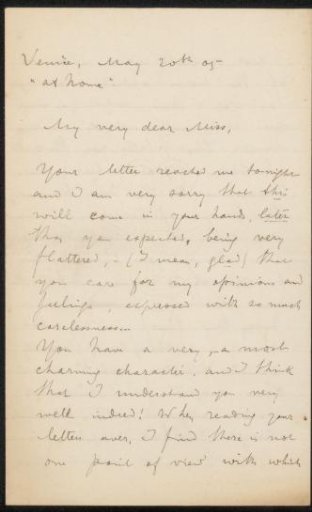 Venice, May 20th 05
"at home"
My very dear Miss,
Your letter reached me tonight
and I am very sorry that this
will come in your hands, later
than you expected, being very
flattered, - (I mean, glad) that
you care for my opinions and
feelings, expressed with so much
carelessness.
You have a very, a most
charming character, and I think
that I understand you very
well indeed! When reading your
letter over, I find there is not
one point of view with which